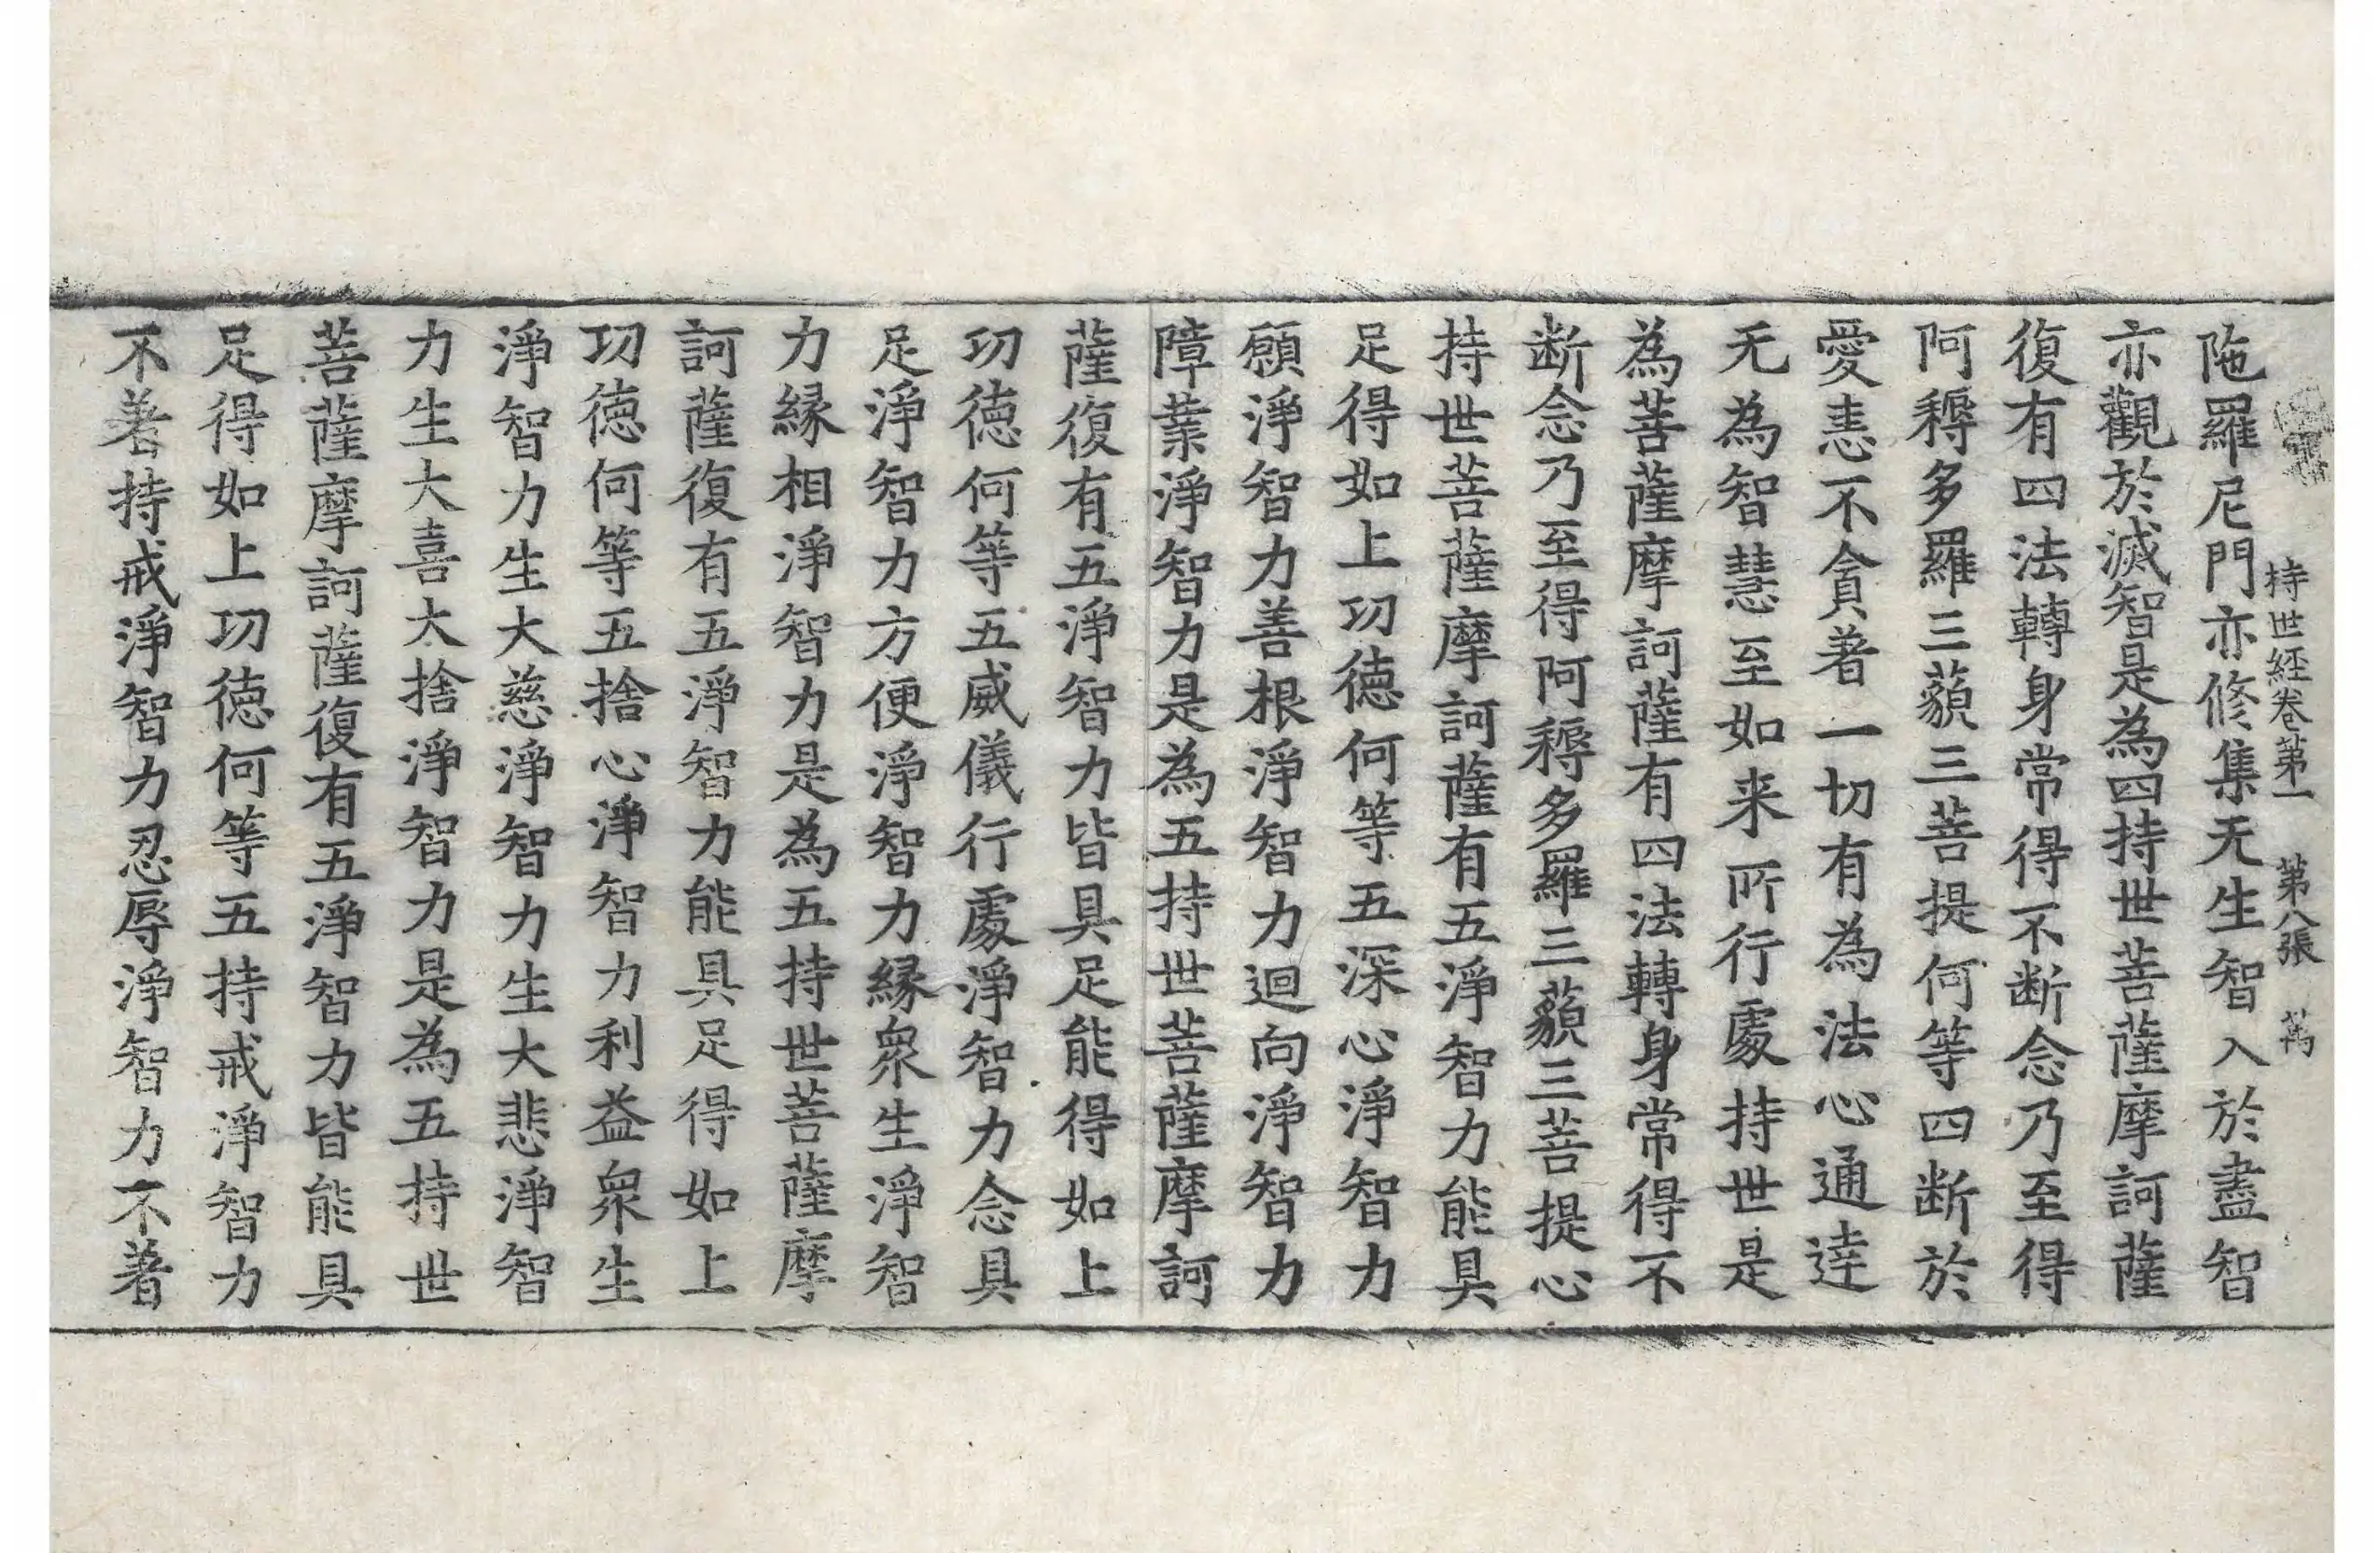 持世経卷第一 第八張 萬
陁羅尼門亦修集无生智入於盡智
亦觀於滅智是為四持世菩薩摩訶薩
復有四法轉身常得不断念乃至得
阿耨多羅三藐三菩提何等四断於
愛恚不貪著一切有為法心通達
无為智慧至如来所行處持世是
為菩薩摩訶薩有四法轉身常得不
断念乃至得阿耨多羅三藐三菩提心
持世菩薩摩訶薩有五淨智力能具
足得如上功徳何等五深心淨智力
願淨智力善根淨智力迴向淨智力
障業淨智力是為五持世菩薩摩訶
薩復有五淨智力皆具足能得如上
功徳何等五威儀行處淨智力念具
足淨智力方便淨智力縁衆生淨智
力縁相淨智力是為五持世菩薩摩
訶薩復有五淨智力能具足得如上
功徳何等五捨心淨智力利益衆生
淨智力生大慈淨智力生大悲淨智
力生大喜大捨淨智力是為五持世
菩薩摩訶薩復有五淨智力皆能具
足得如上功徳何等五持戒淨智力
不著持戒淨智力忍辱淨智力不著